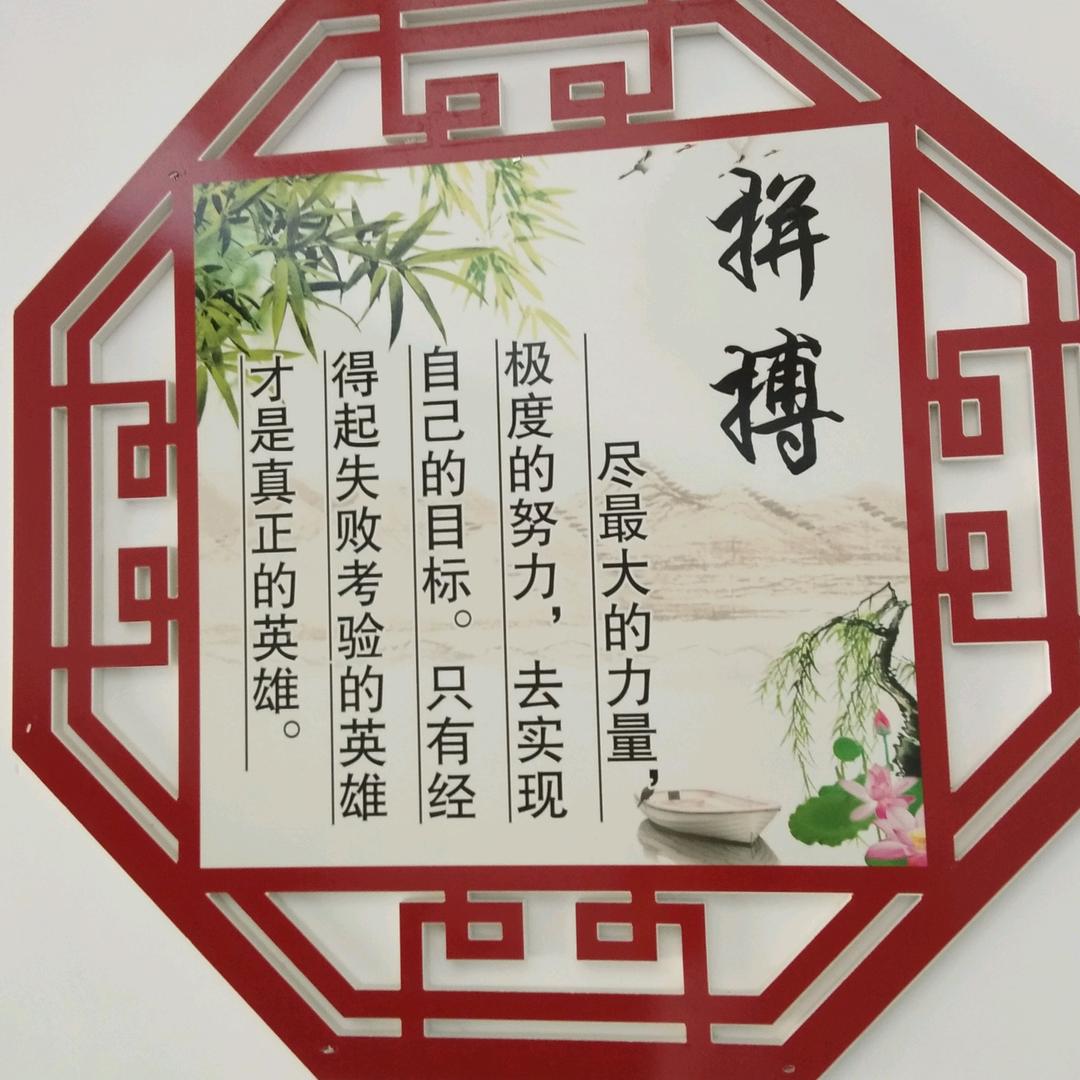 拼搏
尽最大的力量，
极度的努力，去实现
自己的目标。只有经
得起失败考验的英雄
才是真正的英雄。